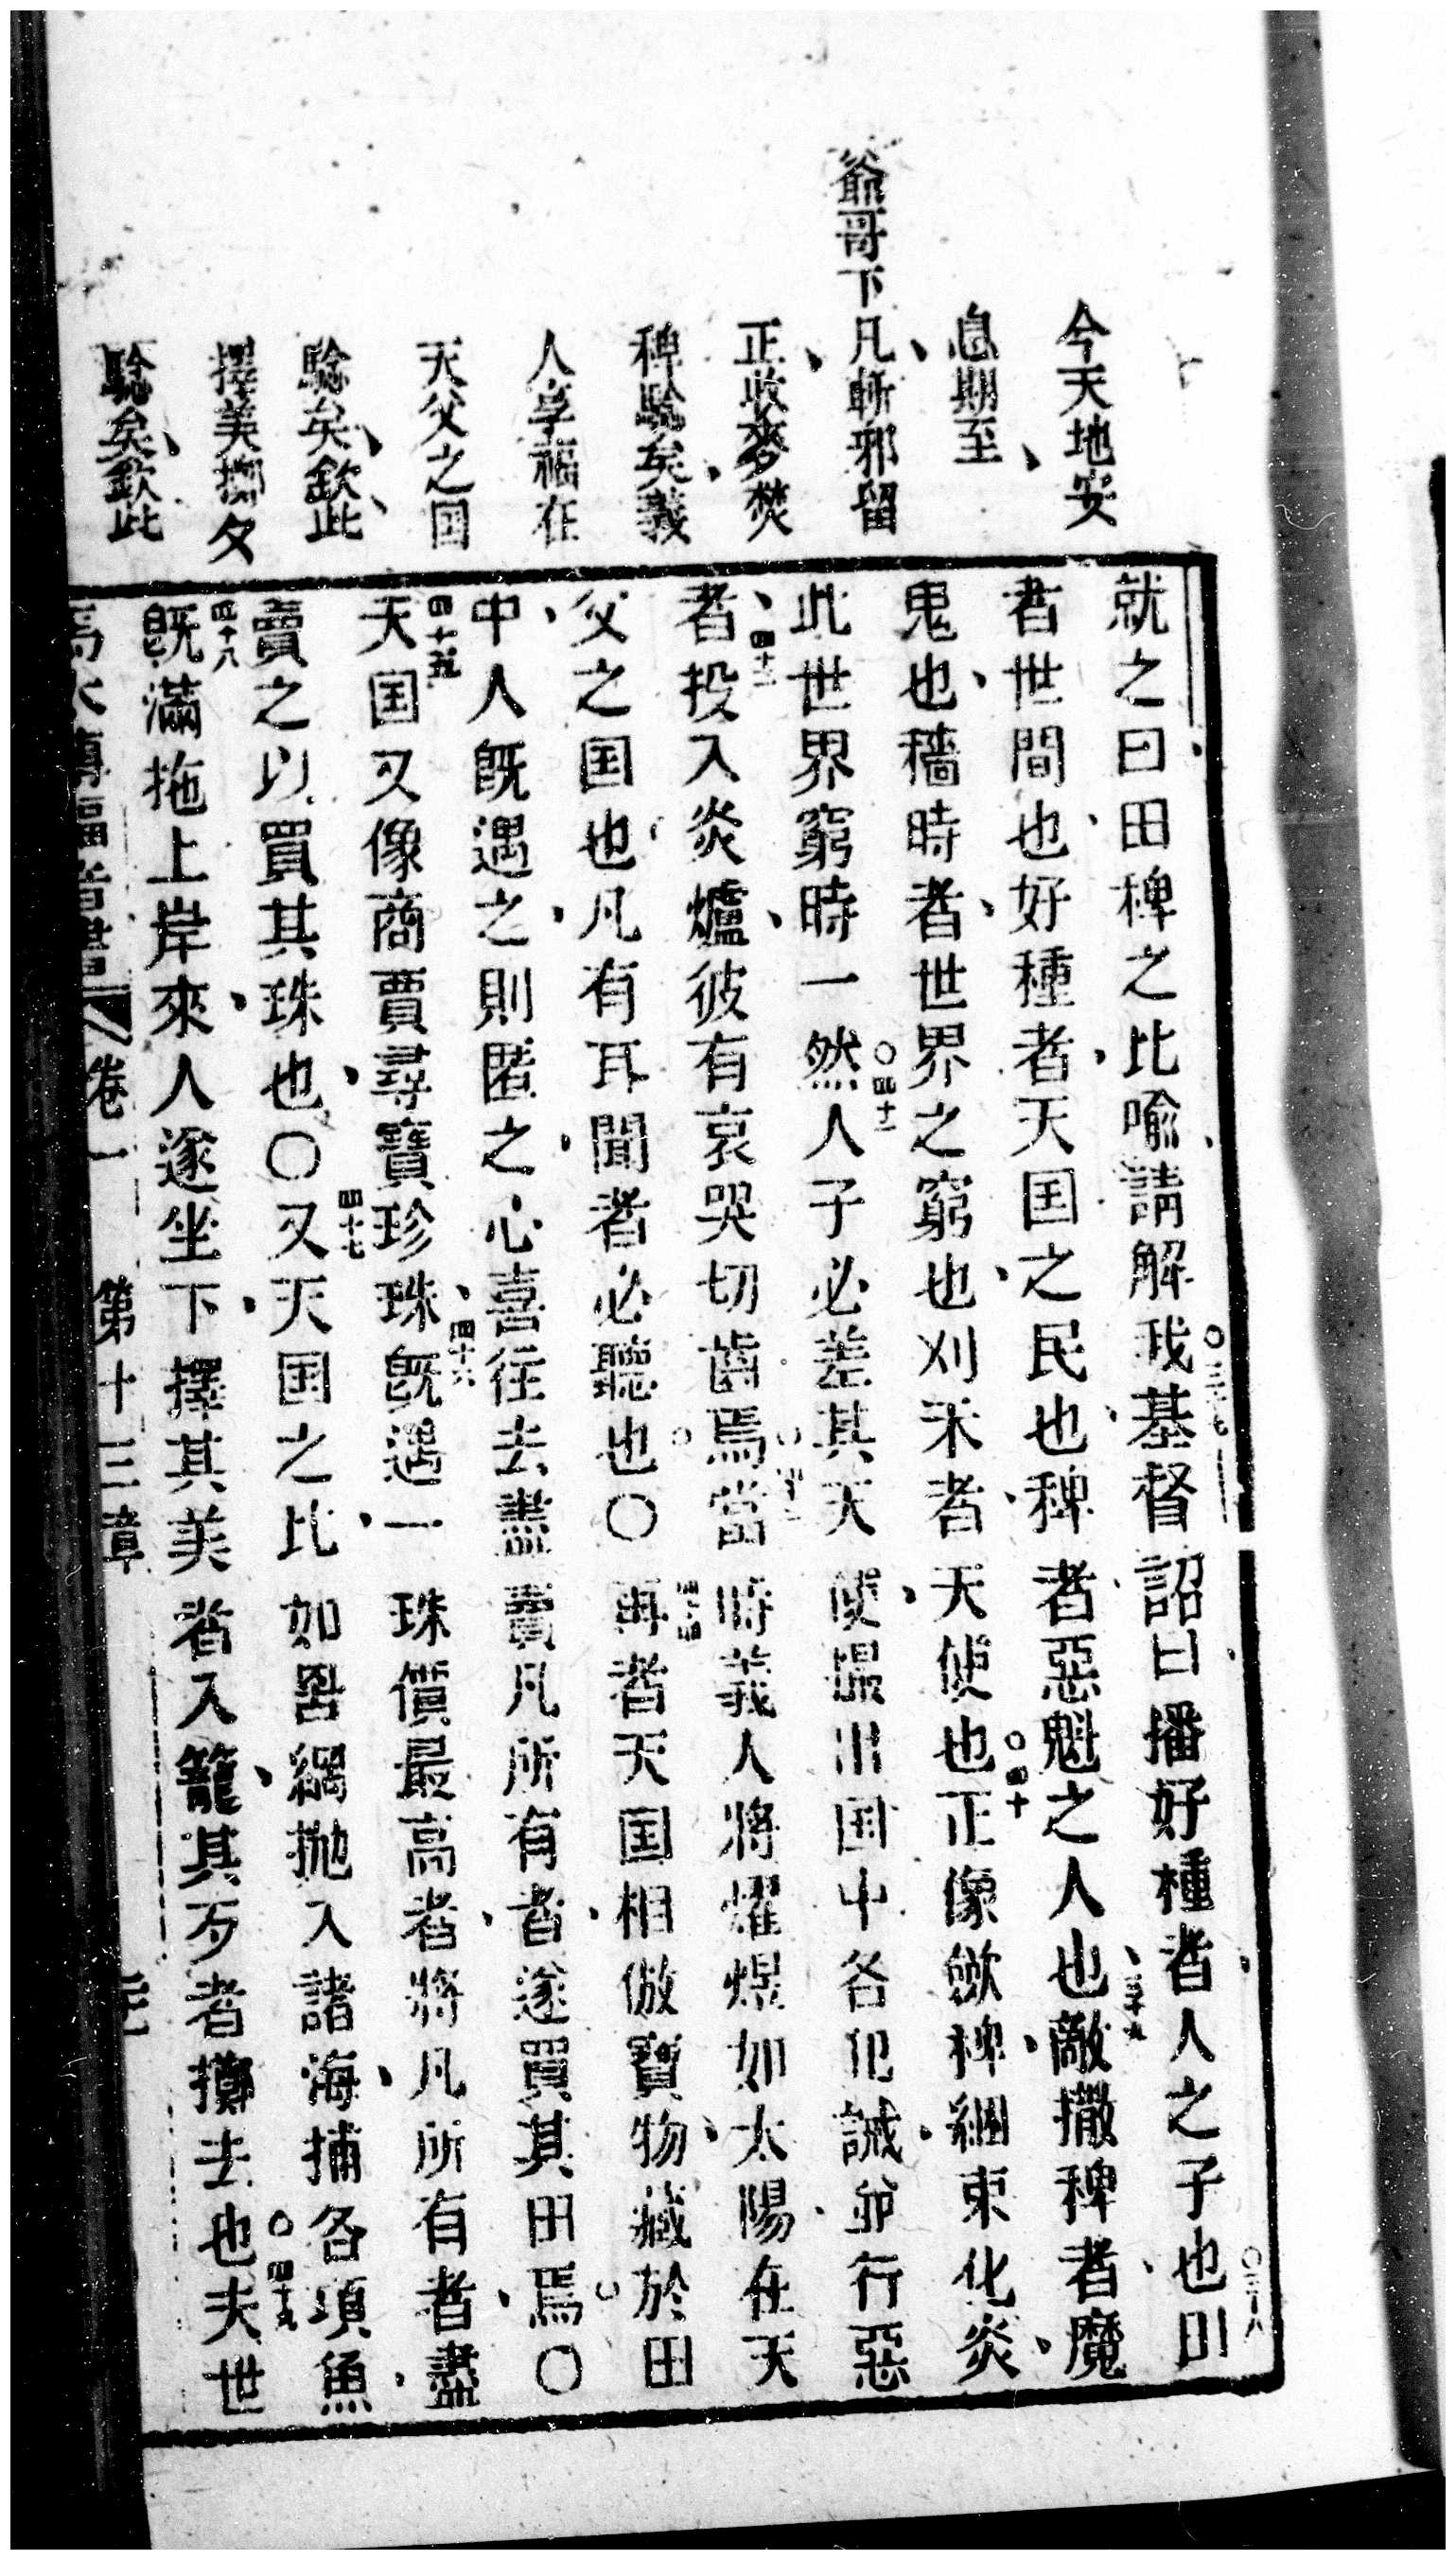 今天地安
息期至、
爺哥下凡、斬邪留
正、收麥焚
稗驗矣、義
人享福在
天父之国
驗矣、欽此、
擇美擲歹
驗矣、欽此
就之曰田稗之比喻、請解我基督詔曰、播好種者、人之子也田
者世間也、好種者、天国之民也、稗者、惡魁之人也、敵撒稗者、魔
鬼也、穡時者、世界之窮也、刈禾者、天使也正像斂稗、綑束化炎、
此世界窮時一然人子必差其天使、撮出国中各犯誡、並行惡
者、投入炎爐、彼有哀哭切齒焉當時義人將耀煜如太陽、在天
父之国也、凡有耳聞者必聽也〇再者天国相倣寶物、藏於田
中、人既遇之、則匿之、心喜往去盡賣凡所有者、遂買其田焉〇
天国又像商賈尋寶珍珠、既遇一珠價最高者、將凡所有者、盡
賣之以買其珠也、〇又天国之比、如罟網抛入諸海、捕各項魚、
既滿拖上岸來、人遂坐下、擇其美者入籠、其歹者擲去也夫世
傳福音書 卷一 第十三章